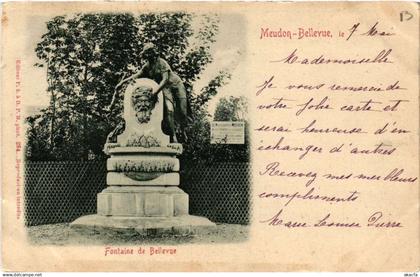 Meudon-Bellevue, le 7 Mai
Mademoiselle
Je vous remercie de
votre jolie carte et
serai heureuse d'en
échanger d'autres
Recevez mes meilleurs
compliments
Marie Louise Pierre
Fontaine de Bellevue
B